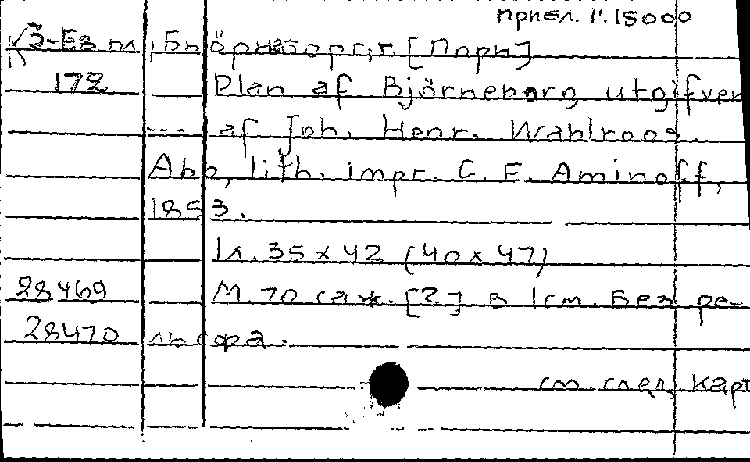 прибл. 1:15000
3-Ез пл. Бьёрнеборг [Пори]
172 Plan af Björneborg utgifven
--- af Joh. Henr. Wahlroos.
Abo, lith. impr. C. E. Aminoff,
1853.
1л. 35 x 42 (40 x 47)
28469 М. 70 саж. [?] в 1см. Без ре-
28470 льефа.
см след. карт